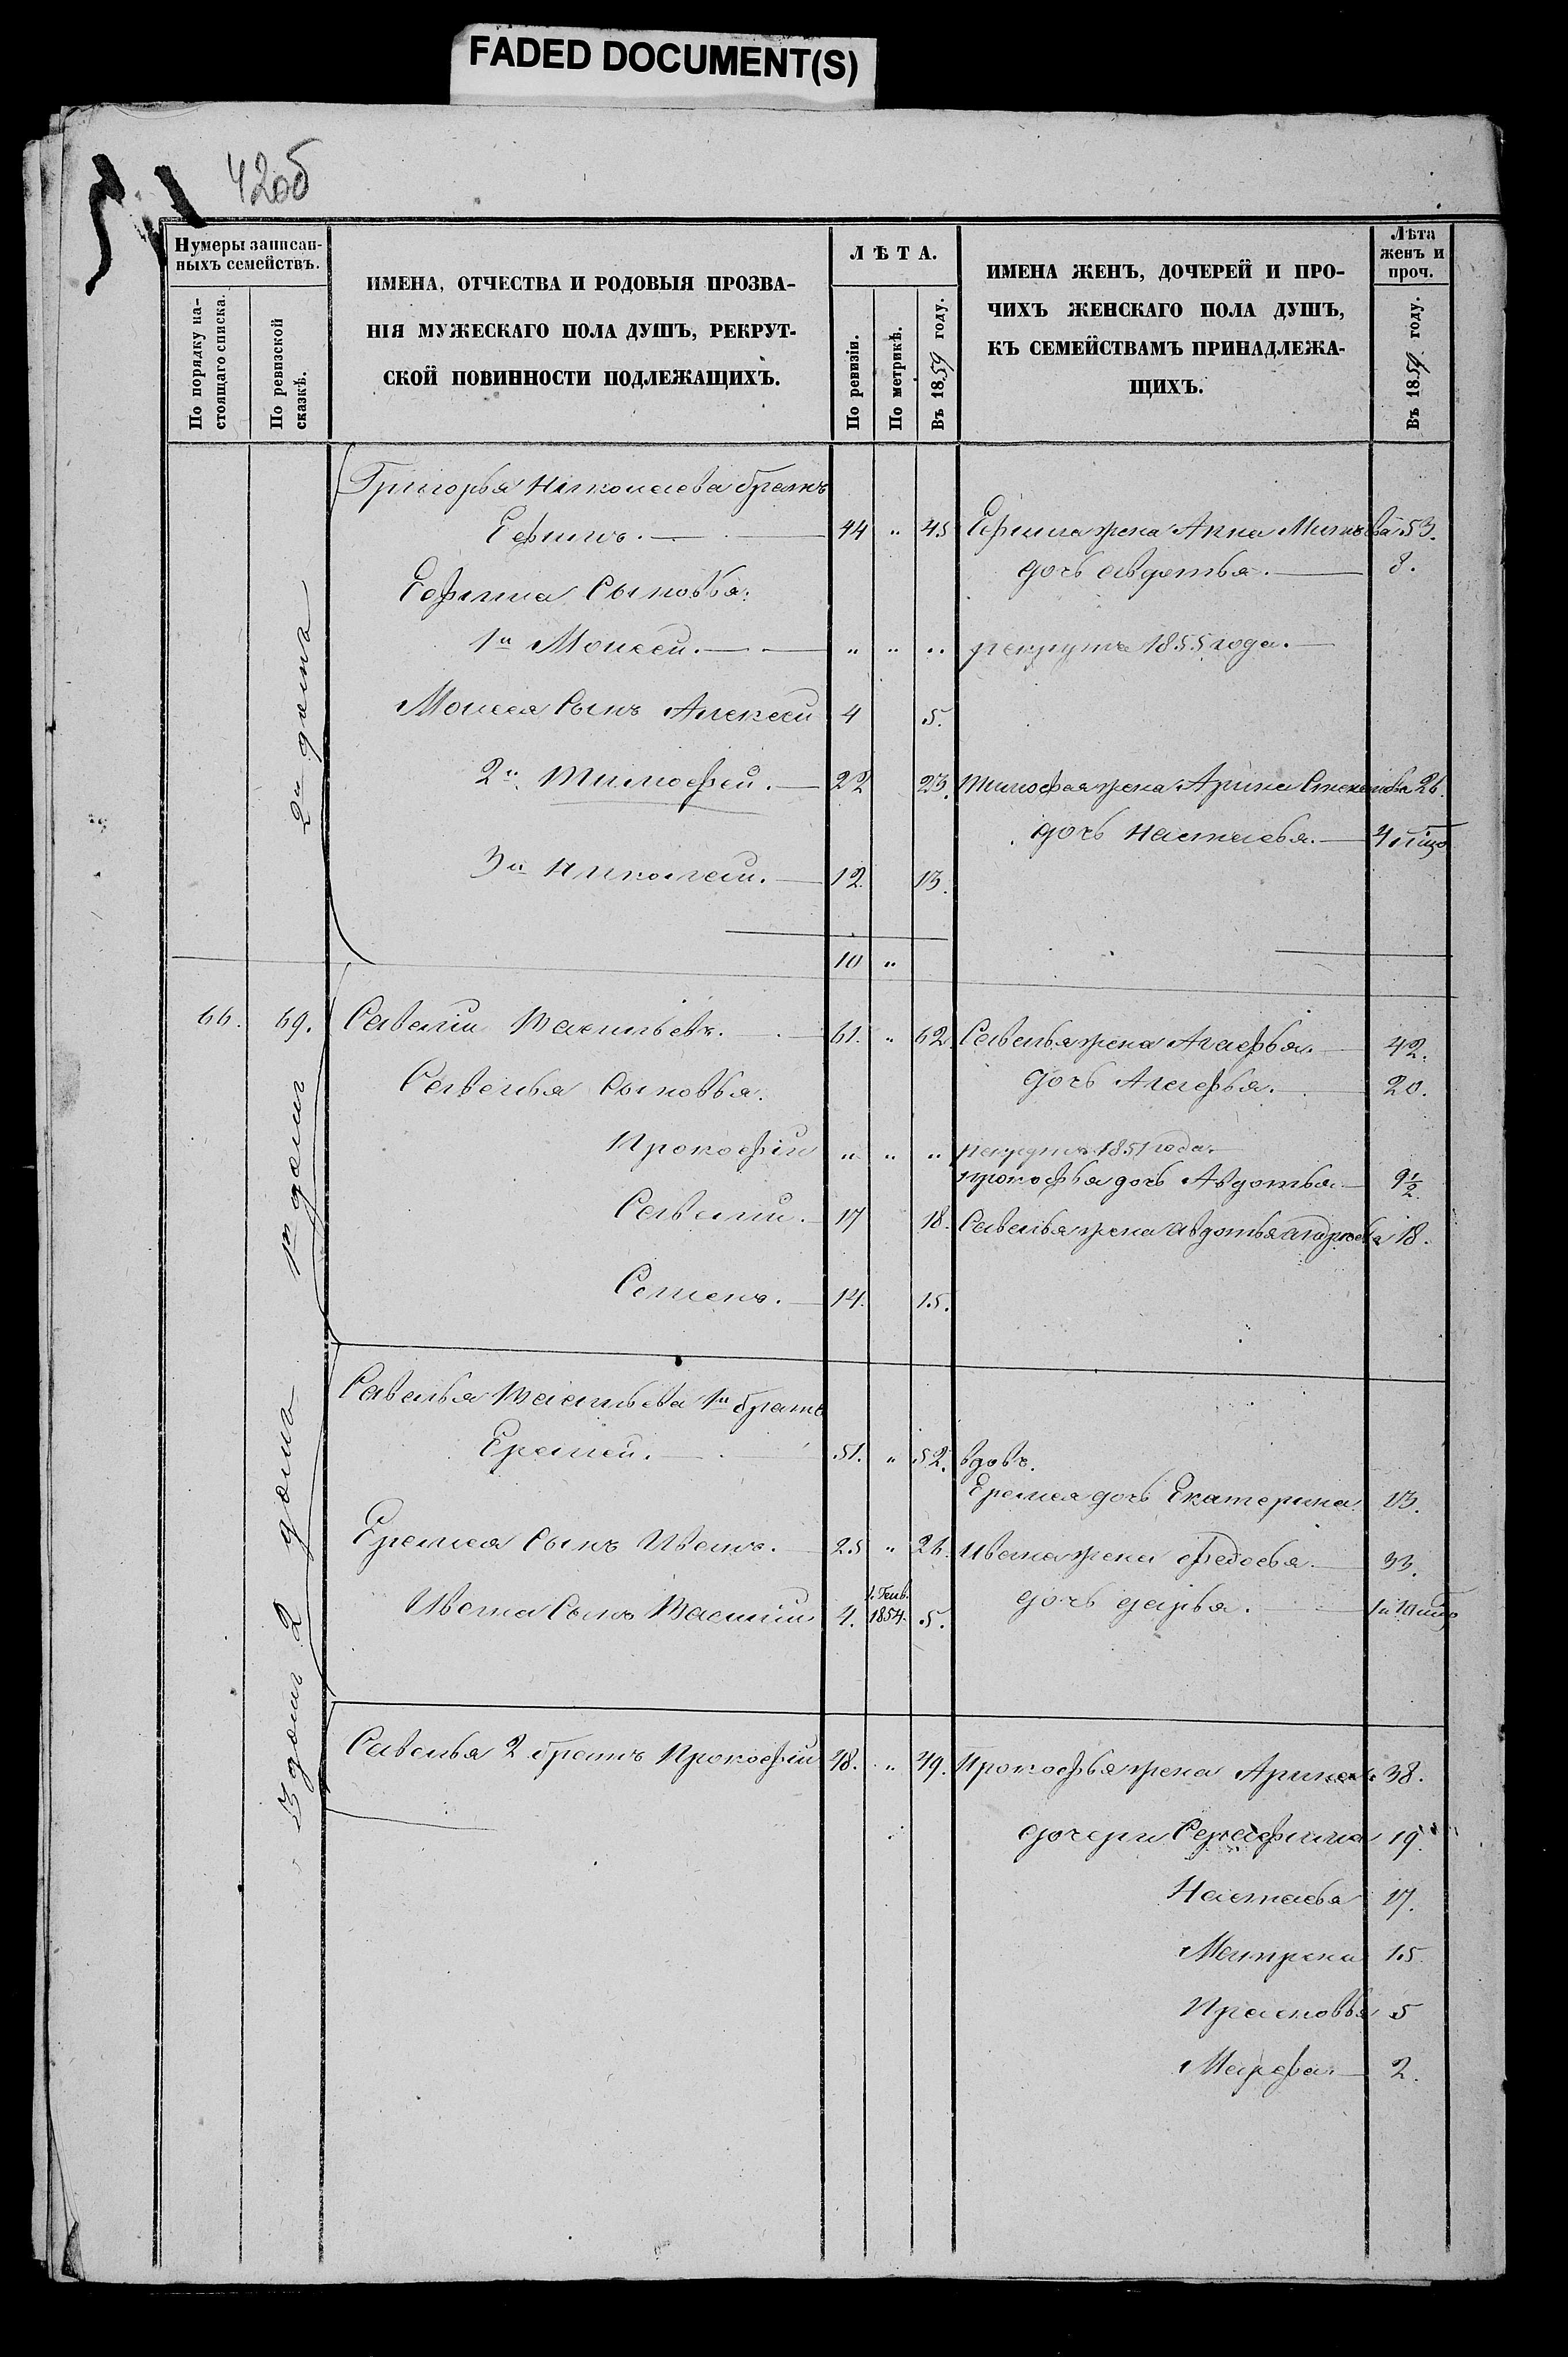 FADED DOCUMENT(S)
42об
Нумеры записан-
ныхъ семействъ.
По порядку на-
стоящаго списка.
По ревизской
сказкѣ.
ИМЕНА, ОТЧЕСТВА И РОДОВЫЯ ПРОЗВА-
НІЯ МУЖЕСКАГО ПОЛА ДУШЪ, РЕКРУТ-
СКОЙ ПОВИННОСТИ ПОДЛЕЖАЩИХЪ.
ЛѢТА.
По ревизіи.
По метрикѣ.
Въ 1859 году.
ИМЕНА ЖЕНЪ, ДОЧЕРЕЙ И ПРО-
ЧИХЪ ЖЕНСКАГО ПОЛА ДУШЪ,
КЪ СЕМЕЙСТВАМЪ ПРИНАДЛЕЖА-
ЩИХЪ.
Лѣта
женъ и
проч.
Въ 1859 году.
2й домъ
Григорья Николаева братъ
Ефимъ. 44 " 45 Ефима жена Анна 53.
дочь Авдотья. 8.
Ефима Сыновья:
1й Моисей. " " " рекрутъ 1855 года.
Моисея Сынъ Алексей 4 5.
2й Тимофей. 22 23. Тимофея жена Арина 26.
дочь Настасья.
3й Николай. 12. 13.
10 "
66. 69. 1й домъ
Савелій Васильевъ. 61. " 62 Савелья жена Агафья. 42.
Савелья Сыновья. дочь Агафья. 20.
Прокофій " " " рекрутъ 1851 года.
Прокофья дочь Авдотья 9 1/2.
Савелій. 17 18. Савелья жена Авдотья Андреева 18.
Семенъ. 14. 15.
2 домъ
Савелья Васильева 1й братъ
Еремей. 51. " 52. вдовъ.
Еремея дочь Екатерина 13.
Еремея Сынъ Иванъ. 25 " 26. Ивана жена Федосья 33.
Ивана Сынъ Василій 4. 1. Генв. 1854. 5. дочь Дарья.
3 домъ
Савелья 2 братъ Прокофій 48. " 49. Прокофья жена Арина 38.
дочери Серафима 19.
Настасья 17.
Матрена 15.
Прасковья 5
Марфа 2.